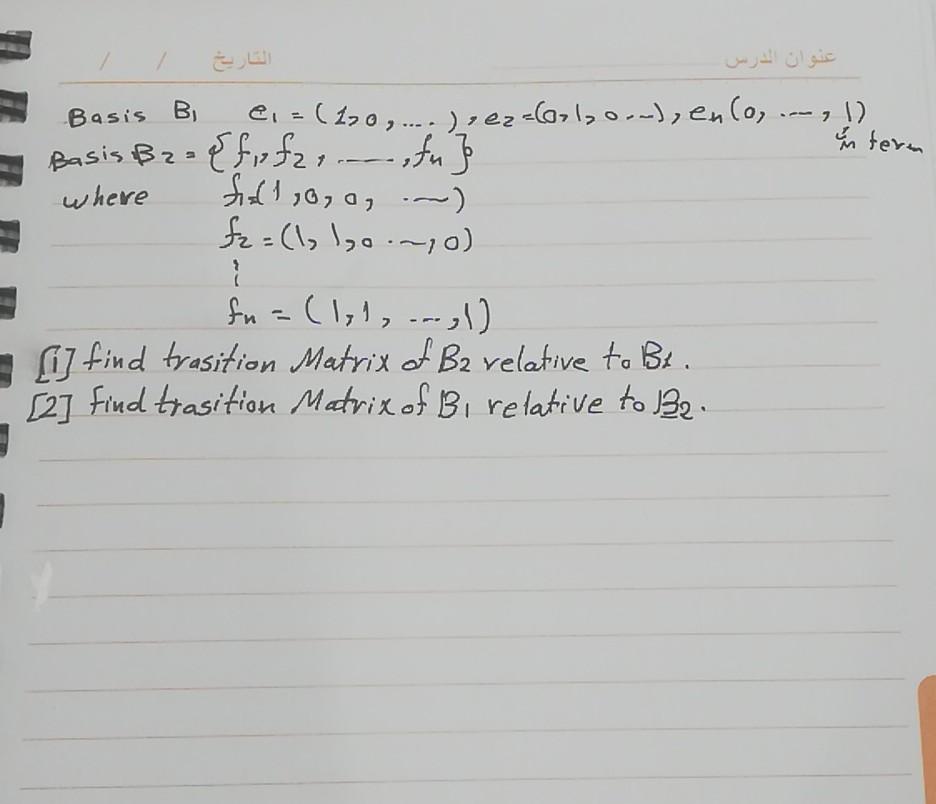 التاريخ / / عنوان الدرس
Basis B₁ e₁ = (1,0, ....), e₂=(0,1,0...), eₙ(0, ...., 1)
n term
Basis B₂ = {f₁, f₂, ......, fₙ}
where f₁=(1,0,0, ....)
f₂ = (1,1,0 ...,0)
⋮
fₙ = (1,1, ....,1)
[1] find trasition Matrix of B₂ relative to B₁.
[2] find trasition Matrix of B₁ relative to B₂.